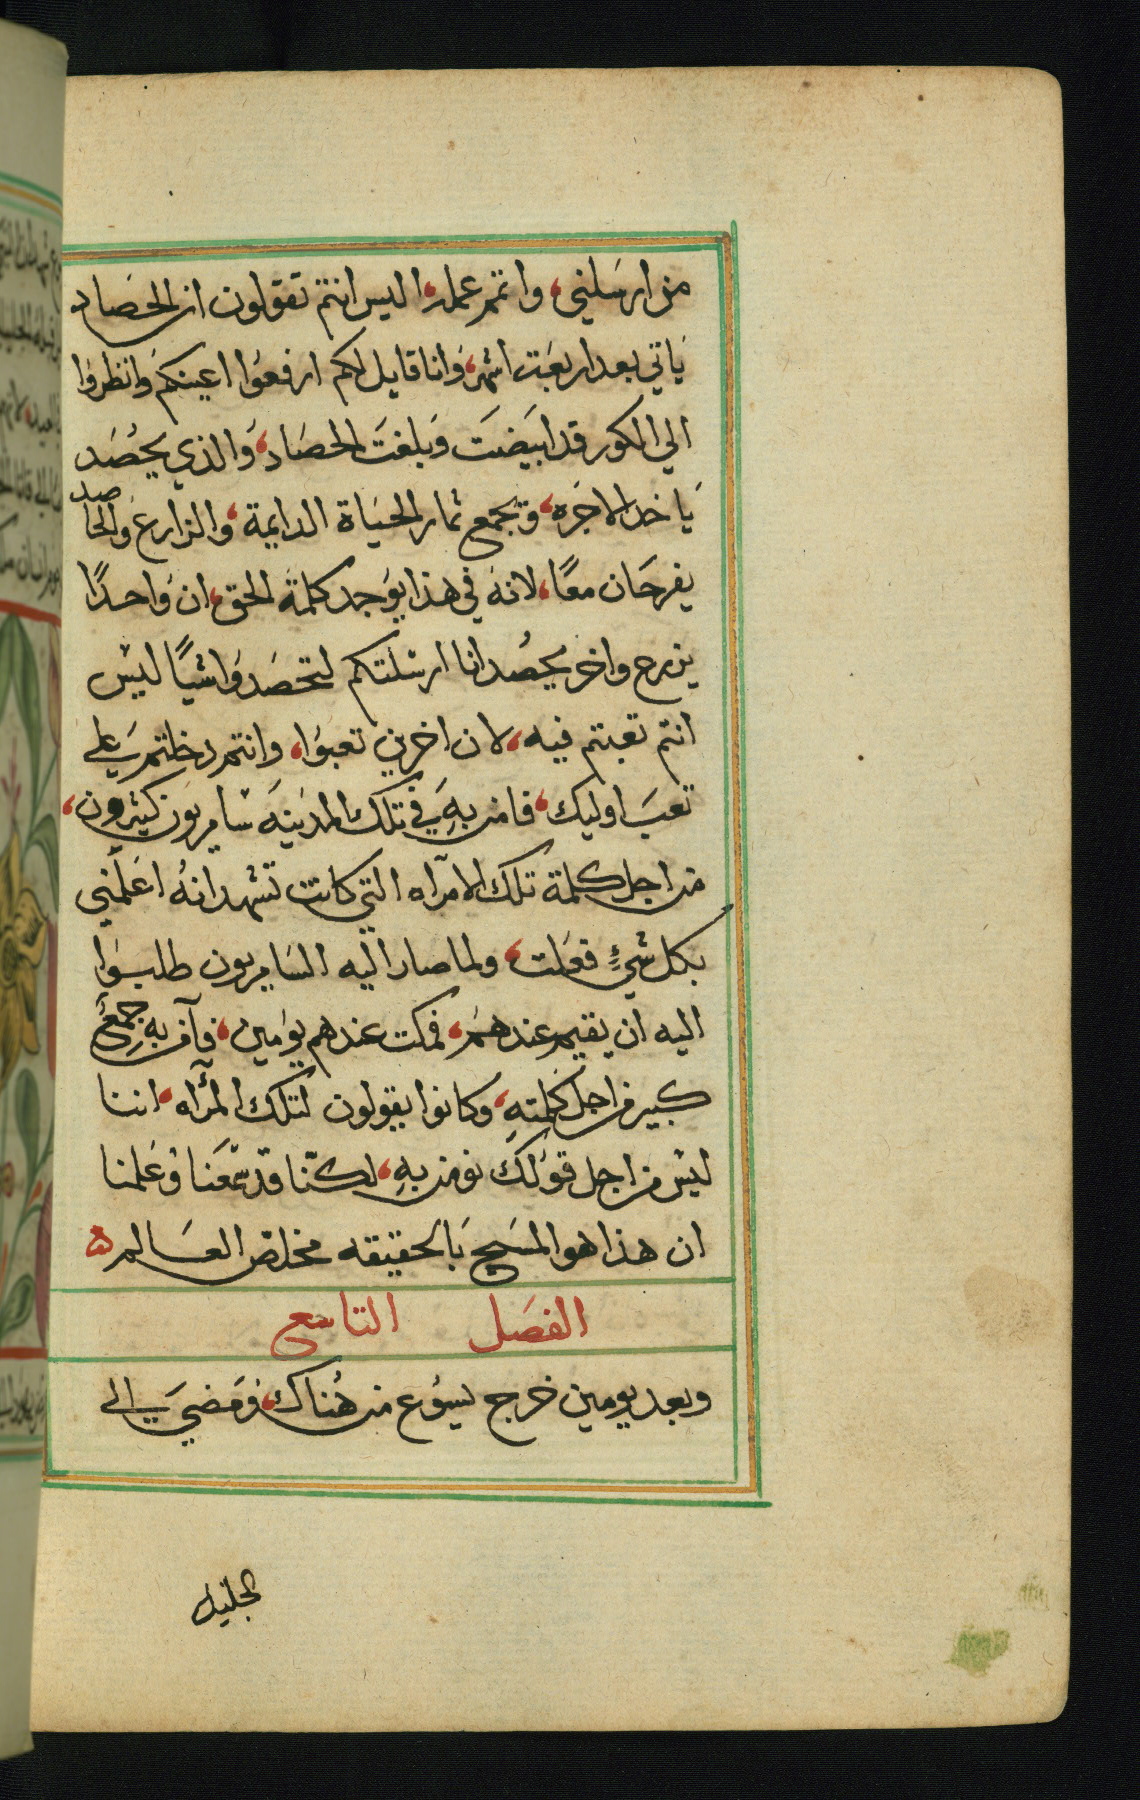 من ارسلني، واتمر عمله، اليس انتم تقولون ان الحصاد
ياتي بعد اربعت اشهر، وانا قايل لكم ارفعوا اعينكم وانظروا
الي الكور قد ابيضت وبلغت الحصاد، والذي يحصد
ياخد الاجره، ويجمع ثمار الحياة الدايمة، والزارع والحاصد
يفرحان معًا، لانه في هذا يوجد كلمة الحق، ان واحدًا
يزرع واخر يحصد انا ارسلتكم لتحصدوا شيًا ليس
انتم تعبتم فيه، لان اخرين تعبوا، وانتم دخلتم علي
تعب اوليك، فامن به في تلك المدينة سامريون كثيرون،
من اجل كلمة تلك الامرآه التي كانت تشهد انهُ اعلمني
بكل شيءٍ فعلت، ولما صار اليه السامريون طلبوا
اليه ان يقيم عندهم، فمكت عندهم يومين، فآمن بهِ جمعٌ
كبير من اجل كلمتهِ، وكانوا يقولون لتلك المرأه، اننا
ليس من اجل قولك نومن بهِ، لكنّنا قد سمعنا وعلمنا
ان هذا هو المسيح بالحقيقه مخلص العالم
الفصل التاسع
وبعد يومين خرج يسوع من هُناك، ومضي الي
الجليل